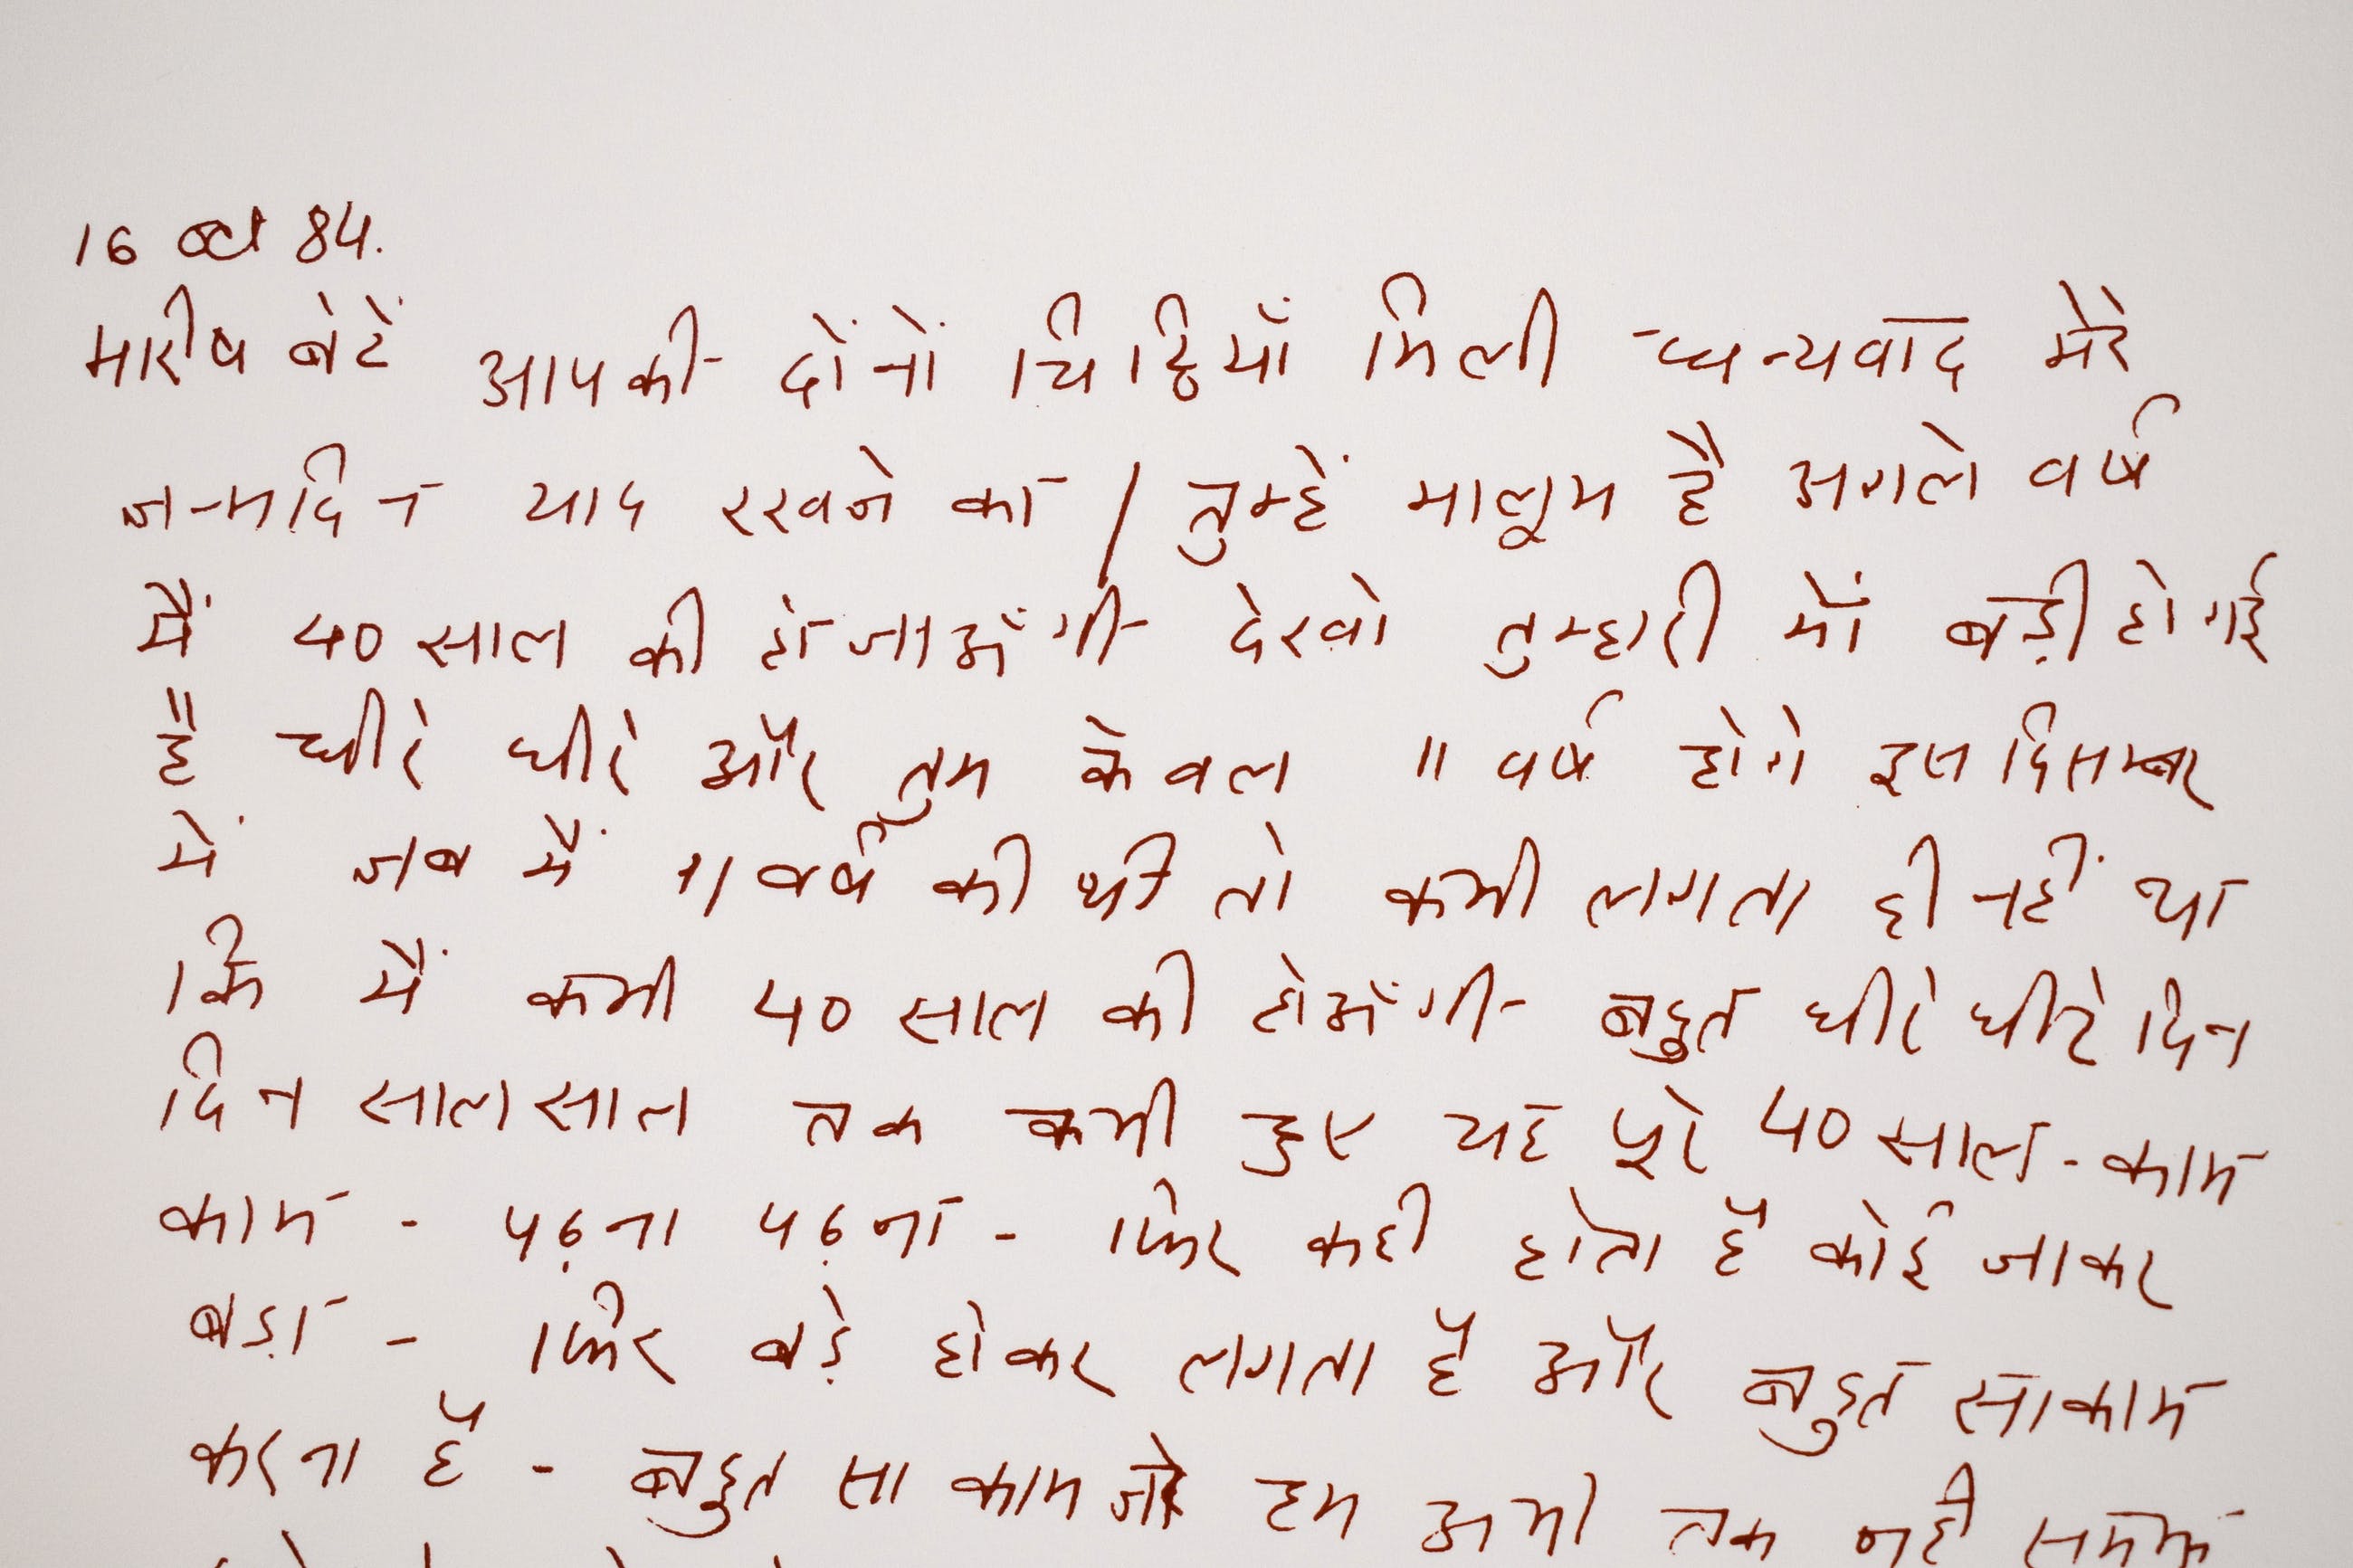 16 oct 84.
मारीष बेटें आपकी दोंनों चिठ्ठियाँ मिली धन्यवाद मेरे
जन्मदिन याद रखने का / तुम्हें मालूम है अगले वर्ष
मैं 40 साल की हो जाऊँगी देखो तुम्हारी माँ बड़ी हो गई
है धीरे धीरे और तुम केवल 11 वर्ष होगे इस दिसम्बर
में जब मैं 11 वर्ष की थी तो कभी लगता ही नहीं था
कि मैं कभी 40 साल की होऊँगी बहुत धीरे धीरे दिन
दिन साल साल तक कभी हुए यह पूरे 40 साल - काम
काम - पढ़ना पढ़ना - फिर कही होता है कोई जाकर
बड़ा - फिर बड़े होकर लगता है और बहुत सा काम
करना है - बहुत सा काम हम अभी तक नही